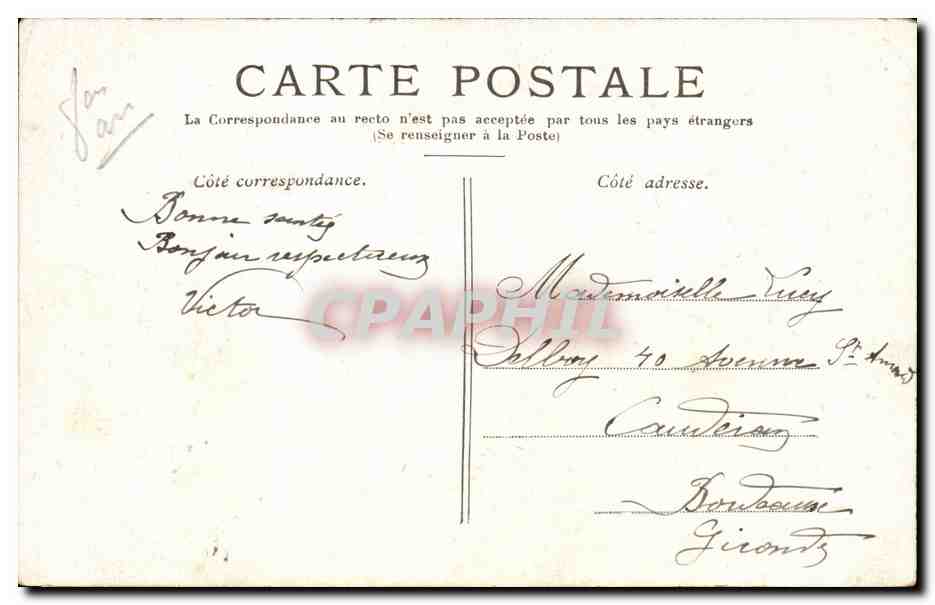 CARTE POSTALE
La Correspondance au recto n'est pas acceptée par tous les pays étrangers
(Se renseigner à la Poste)
Côté correspondance.
Bonne santé
Bonjour respectueux
Victor
Côté adresse.
Mademoiselle Lucy
40 Avenue St Amand
Caudéran
Bordeaux
Gironde
CPAPHIL